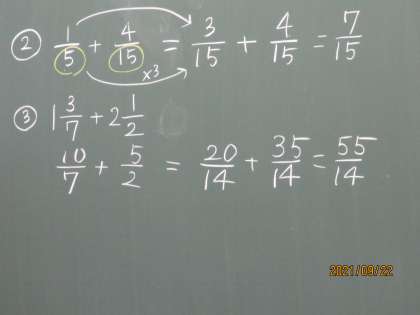 ② 1/5 + 4/15 = 3/15 + 4/15 = 7/15
×3
③ 1 3/7 + 2 1/2
10/7 + 5/2 = 20/14 + 35/14 = 55/14
2021/09/22